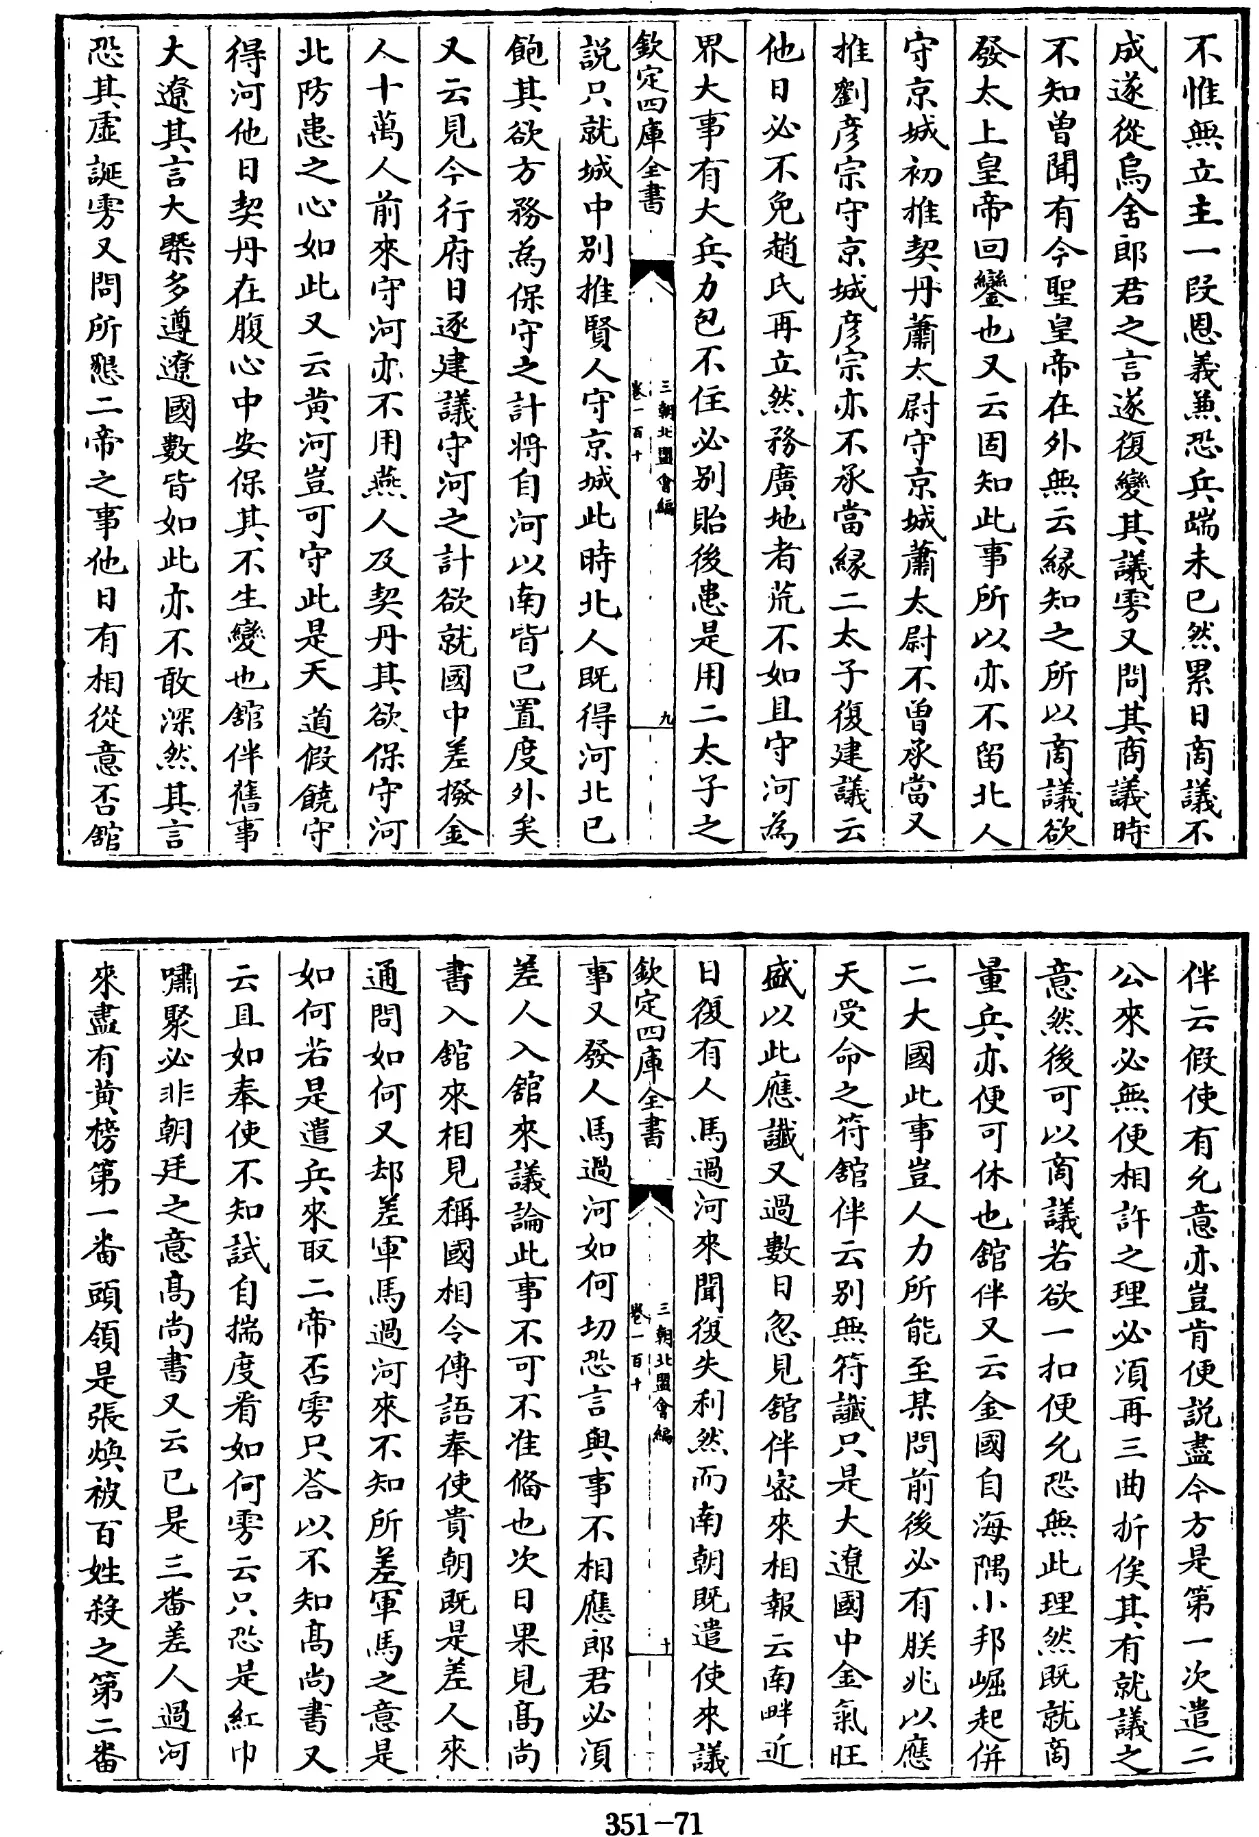 不惟無立主一段恩義兼恐兵端未已然累日商議不
成遂從烏舍郎君之言遂復變其議雱又問其商議時
不知曾聞有今聖皇帝在外無云緣知之所以商議欲
發太上皇帝回鑾也又云固知此事所以亦不留北人
守京城初推契丹蕭太尉守京城蕭太尉不曾承當又
推劉彦宗守京城彦宗亦不承當緣二太子復建議云
他日必不免趙氏再立然務廣地者荒不如且守河為
界大事有大兵力包不住必别貽後患是用二太子之
欽定四庫全書
三朝北盟會編
卷一百十
九
説只就城中别推賢人守京城此時北人既得河北已
飽其欲方務為保守之計將自河以南皆已置度外矣
又云見今行府日逐建議守河之計欲就國中差撥金
人十萬人前來守河亦不用燕人及契丹其欲保守河
北防患之心如此又云黄河豈可守此是天道假饒守
得河他日契丹在腹心中安保其不生變也舘伴舊事
大遼其言大槩多遵遼國數皆如此亦不敢深然其言
恐其虛誕雱又問所懇二帝之事他日有相從意否舘
伴云假使有允意亦豈肯便説盡今方是第一次遣二
公來必無便相許之理必湏再三曲折俟其有就議之
意然後可以商議若欲一扣便允恐無此理然既就商
量兵亦便可休也舘伴又云金國自海隅小邦崛起併
二大國此事豈人力所能至某問前後必有朕兆以應
天受命之符舘伴云别無符讖只是大遼國中金氣旺
盛以此應讖又過數日忽見舘伴宻來相報云南畔近
日復有人馬過河來聞復失利然而南朝既遣使來議
欽定四庫全書
三朝北盟會編
卷一百十
十
事又發人馬過河如何切恐言與事不相應郎君必湏
差人入舘來議論此事不可不准備也次日果見髙尚
書入舘來相見稱國相令傳語奉使貴朝既是差人來
通問如何又却差軍馬過河來不知所差軍馬之意是
如何若是遣兵來取二帝否雱只荅以不知髙尚書又
云且如奉使不知試自揣度看如何雱云只恐是紅巾
嘯聚必非朝廷之意髙尚書又云已是三番差人過河
來盡有黄榜第一番頭領是張煥被百姓殺之第二番
351-71